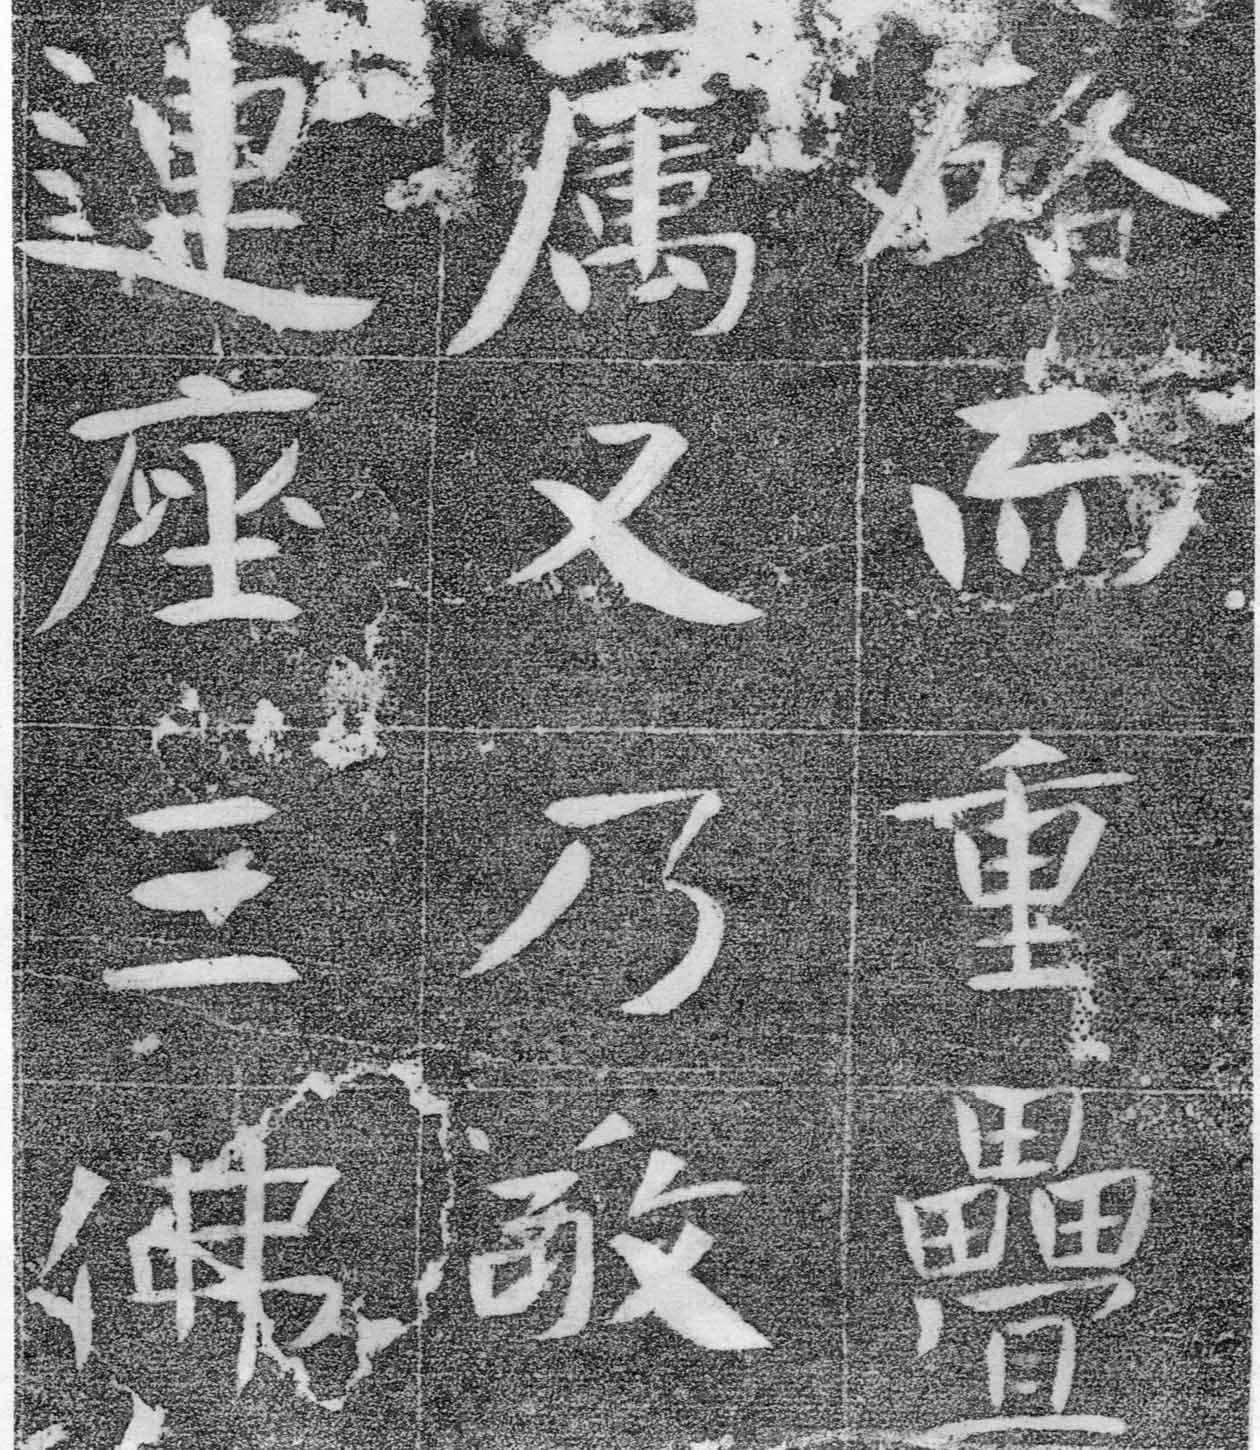 啓而重疊
属又乃敞
連座三佛